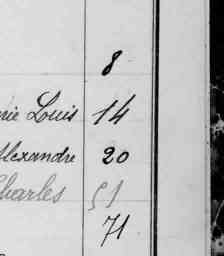 8
rie Louis 14
Alexandre 20
Charles 51
71